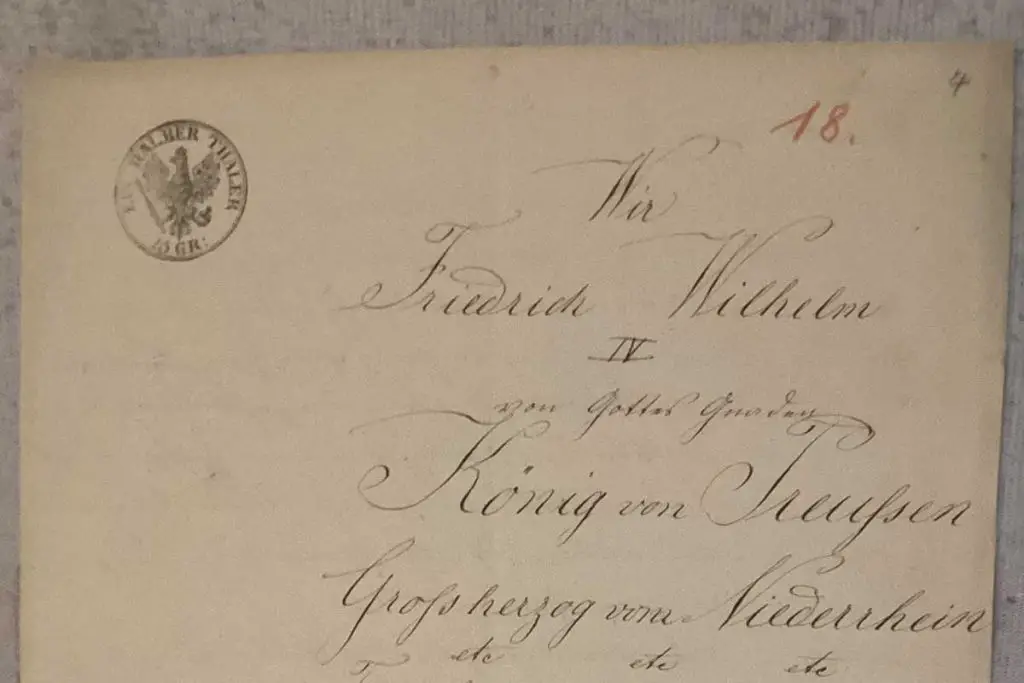 4
18.
EIN HALBER THALER
15 GR:
Wir
Friedrich Wilhelm
IV
von Gottes Gnaden
König von Preußen
Großherzog vom Niederrhein
etc etc etc